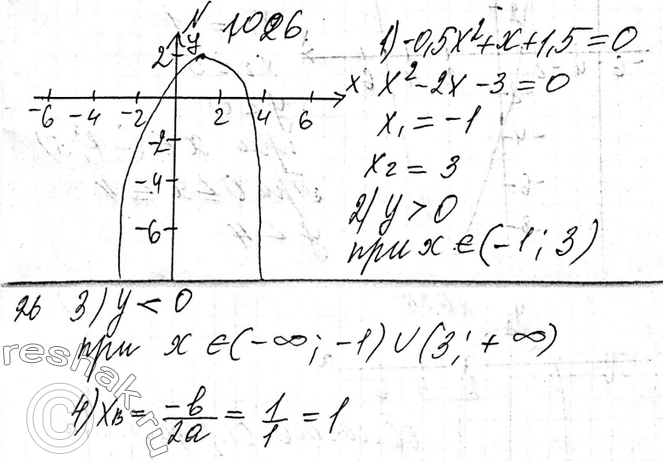 N 1026
y
2
-6 -4 -2 2 4 6 x
-2
-4
-6
1) -0,5x²+x+1,5=0
x²-2x-3=0
x₁=-1
x₂=3
2) y>0
при x∈(-1; 3)
26 3) y<0
при x∈(-∞; -1)∪(3; +∞)
4) xв = -b/2a = 1/1 = 1
reshak.ru